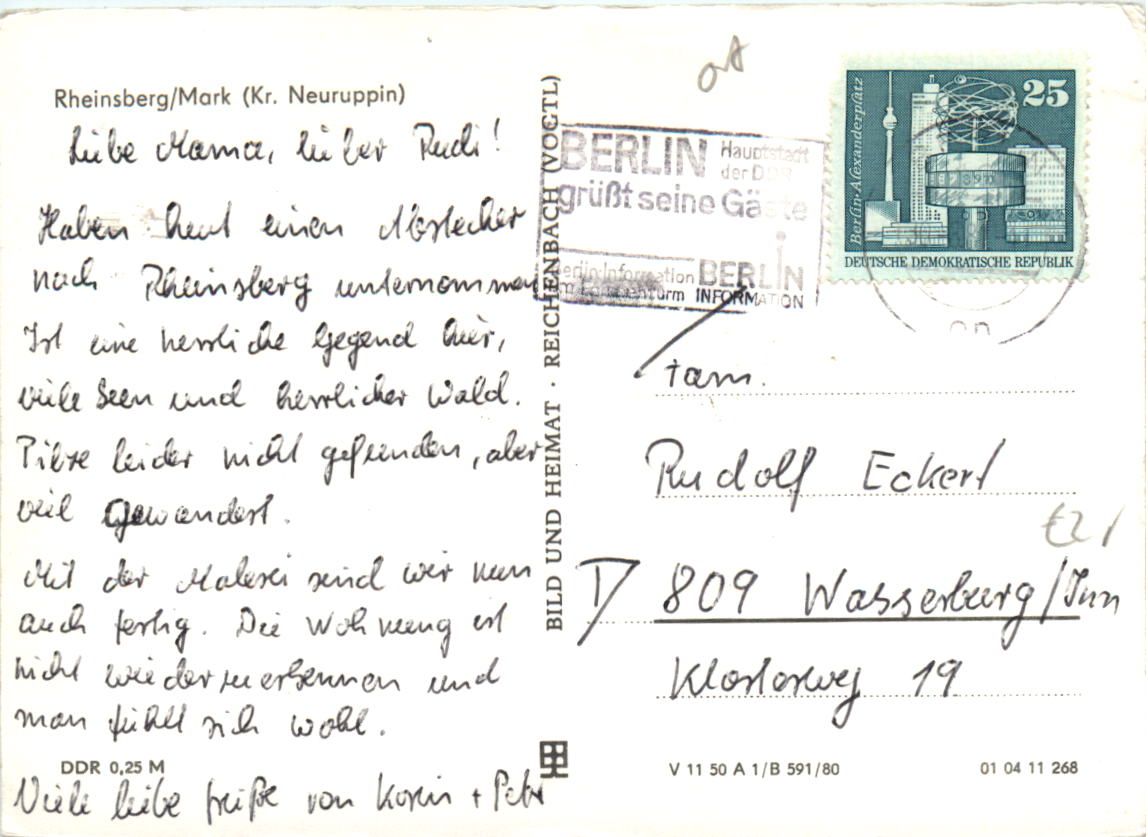 Rheinsberg/Mark (Kr. Neuruppin)
Liebe Mama, lieber Rudi!
Haben heut einen Abstecher
nach Rheinsberg unternommen
Ist eine herrliche Gegend hier,
viele Seen und herrlicher Wald.
Pilze leider nicht gefunden, aber
viel Gewandert.
Mit der Malerei sind wir nun
auch fertig. Die Wohnung ist
nicht wiederzuerkennen und
man fühlt sich wohl.
DDR 0,25 M
Viele liebe Grüße von Karin + Peter
BILD UND HEIMAT · REICHENBACH (VOGTL)
BERLIN Hauptstadt
der DDR
grüßt seine Gäste
Berlin-Information BERLIN
INFORMATION
Berlin-Alexanderplatz
25
DEUTSCHE DEMOKRATISCHE REPUBLIK
Fam.
Rudolf Eckert
€2,
D 809 Wasserburg/Inn
Klosterweg 19
V 11 50 A 1/B 591/80
01 04 11 268